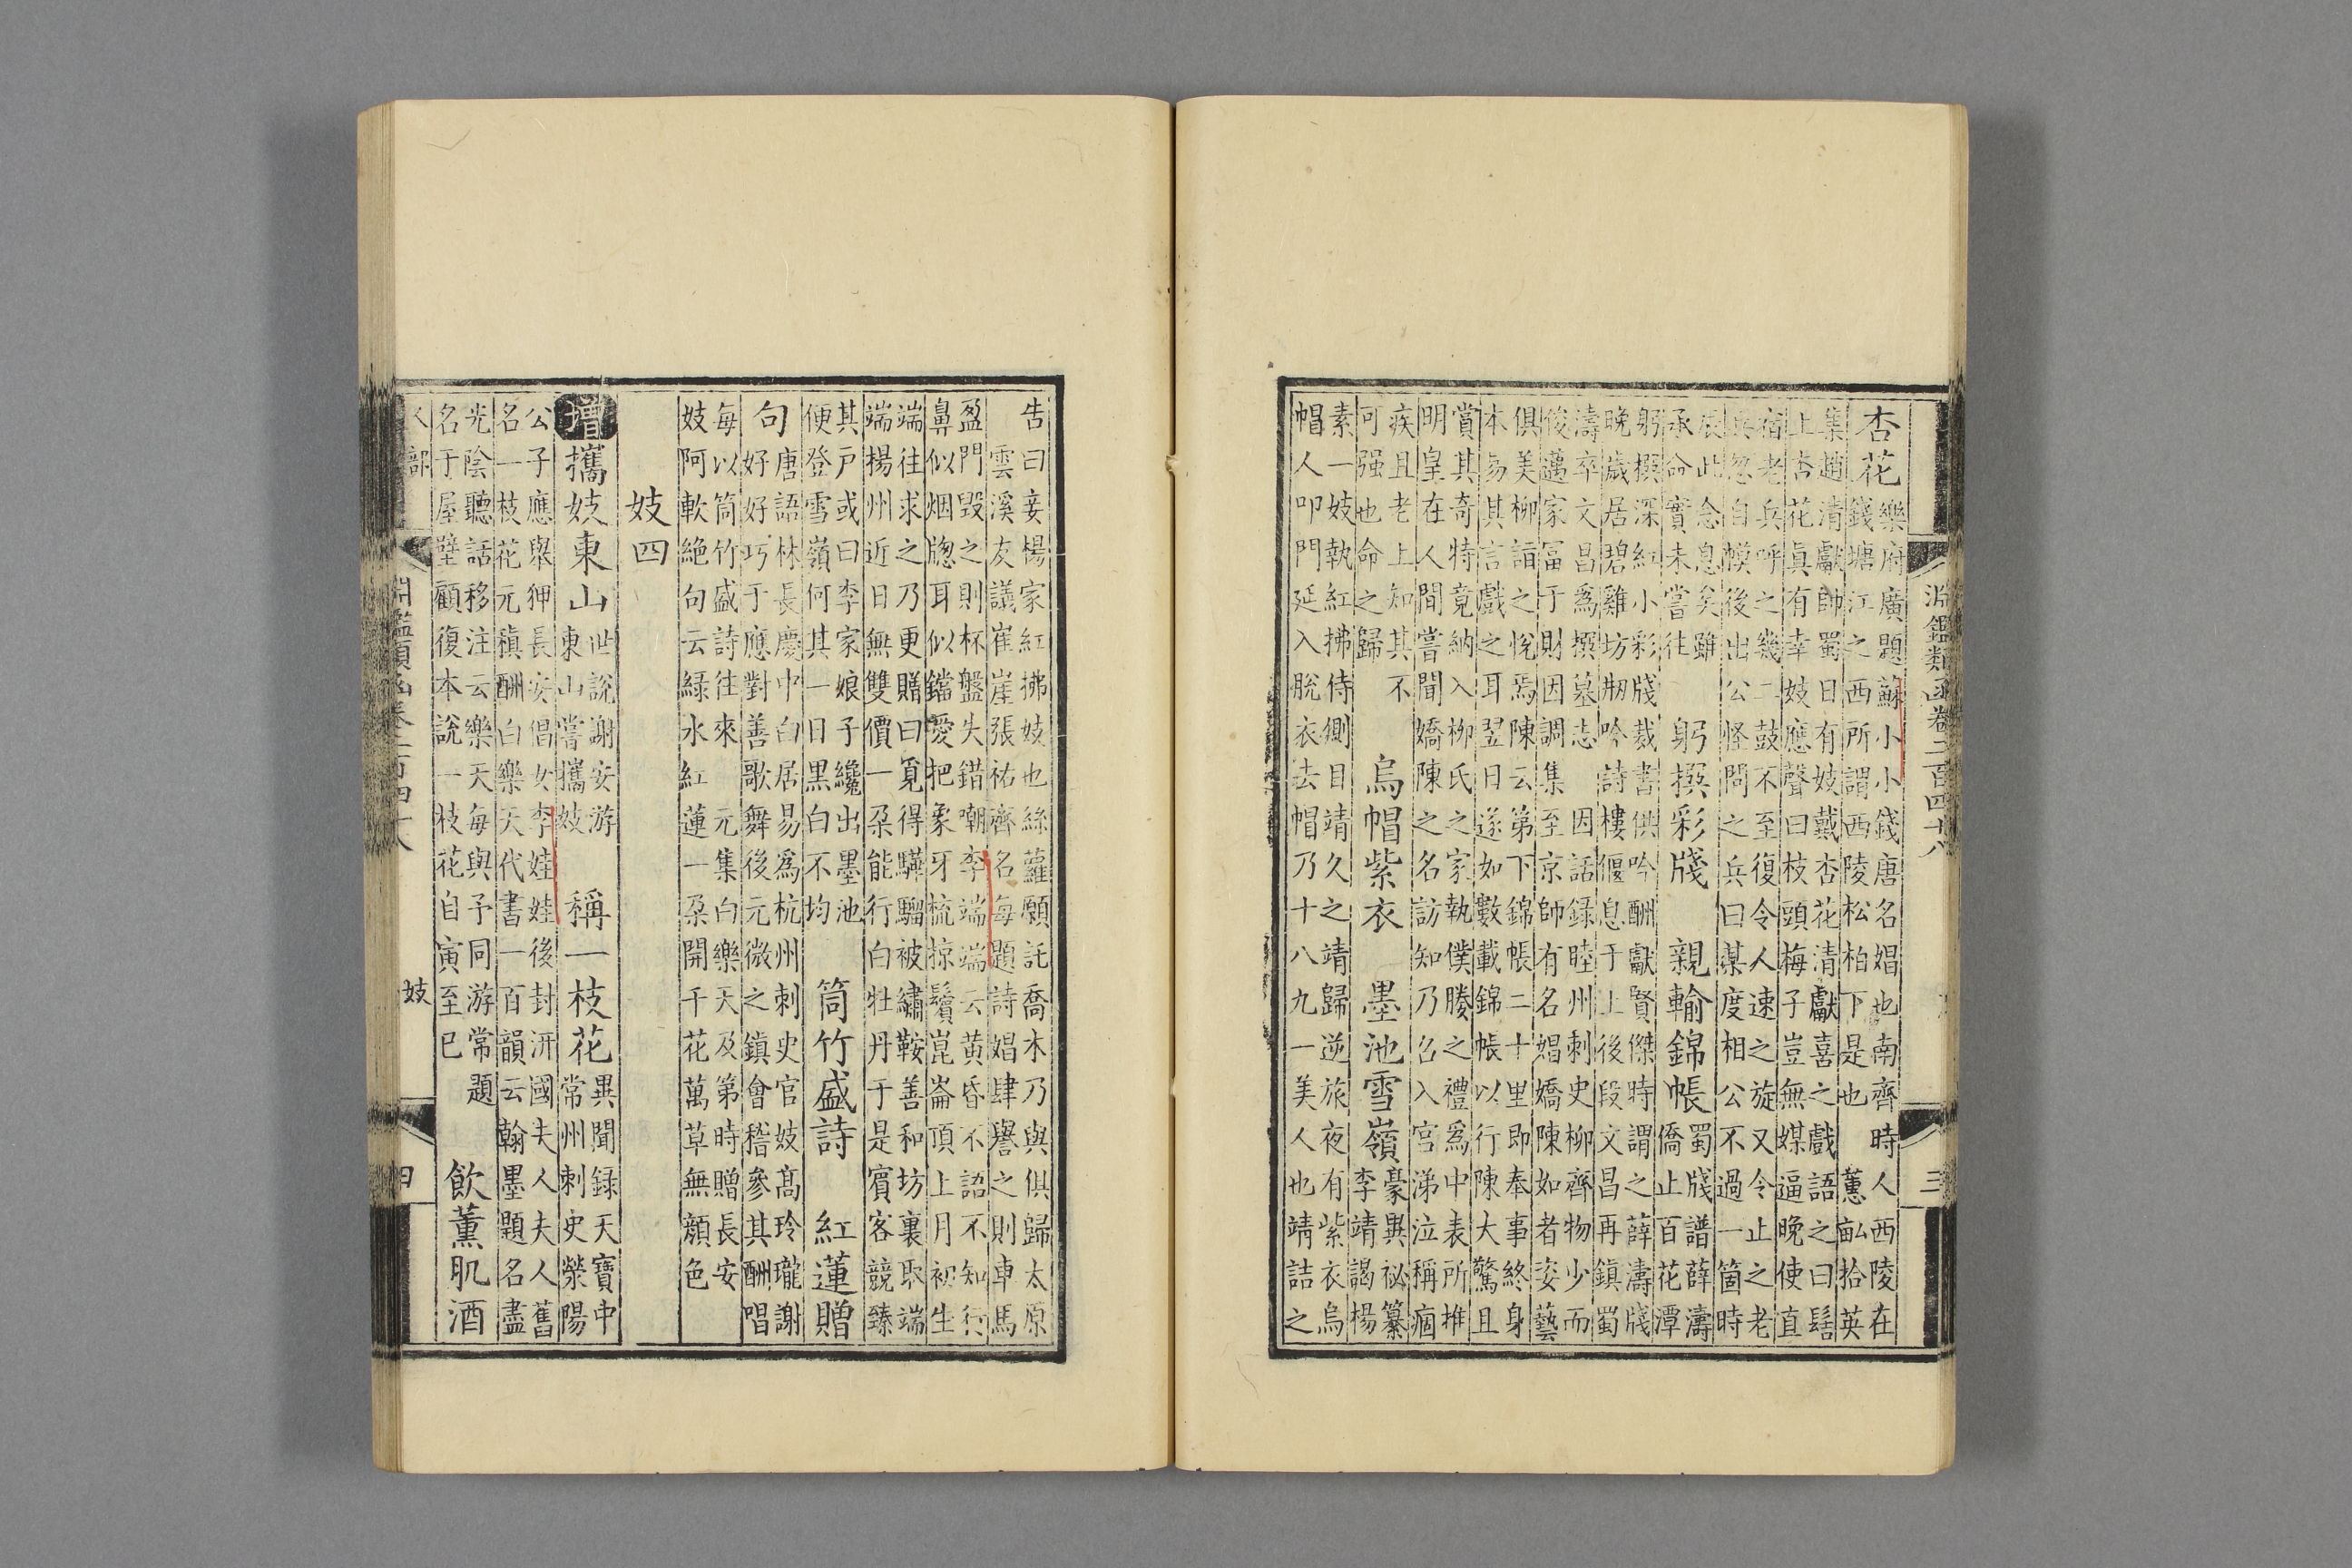 淵鑑類函卷二百四十八 三
杏花
樂府廣題蘇小小錢唐名娼也南齊時人西陵在
錢塘江之西所謂西陵松柏下是也 蕙畝拾英
集趙清獻帥蜀日有妓戴杏花清獻喜之戲語之曰髻
上杏花真有幸妓應聲曰枝頭梅子豈無媒逼晚使直
宿老兵呼之幾二鼓不至復令人速之旋又令止之老
兵忽自幙後出公怪問之兵曰某度相公不過一箇時
辰此念息矣雖
承命實未嘗往
躬撰彩牋 親輸錦帳
蜀牋譜薛濤
僑止百花潭
躬撰深紅小彩牋裁書供吟酬獻賢傑時謂之薛濤牋
晚歲居碧雞坊剏吟詩樓偃息于上後段文昌再鎮蜀
濤卒文昌爲撰墓志 因話録睦州刺史柳齊物少而
俊邁家富于財因調集至京師有名娼嬌陳如者姿藝
俱美柳詣之悅焉陳云第下錦帳二十里即奉事終身
本易其言戲之耳翌日遂如數載錦帳以行陳大驚且
賞其奇特竟納入柳氏之家執僕媵之禮爲中表所推
明皇在人間嘗聞嬌陳之名訪知乃召入宮涕泣稱痼
疾且老上知其不
可强也命之歸
烏帽紫衣 墨池雪嶺
豪異祕纂
李靖謁楊
素一妓執紅拂侍側目靖久之靖歸逆旅夜有紫衣烏
帽人叩門延入脫衣去帽乃十八九一美人也靖詰之
告曰妾楊家紅拂妓也絲蘿願託喬木乃與俱歸太原
雲溪友議崔崖張祐齊名每題詩娼肆譽之則車馬
盈門毀之則杯盤失錯嘲李端端云黃昏不語不知行
鼻似烟牕耳似鐺愛把象牙梳掠鬢崑崙頂上月初生
端往求之乃更贈曰覓得驊騮被繡鞍善和坊裏取端
端揚州近日無雙價一朶能行白牡丹于是賓客競臻
其戶或曰李家娘子纔出墨池
便登雪嶺何其一日黑白不均
筒竹盛詩 紅蓮贈
句
唐語林長慶中白居易爲杭州刺史官妓高玲瓏謝
好好巧于應對善歌舞後元微之鎮會稽參其酬唱
每以筒竹盛詩往來 元集白樂天及第時贈長安
妓阿軟絶句云綠水紅蓮一朶開千花萬草無顏色
妓四
增攜妓東山
世說謝安游
東山嘗攜妓
稱一枝花
異聞録天寶中
常州刺史滎陽
公子應舉狎長安倡女李娃娃後封汧國夫人夫人舊
名一枝花元稹酬白樂天代書一百韻云翰墨題名盡
光陰聽話移注云樂天每與予同游常題
名于屋壁顧復本說一枝花自寅至巳
飲薰肌酒
人部 妓
淵鑑類函卷二百四十八 四